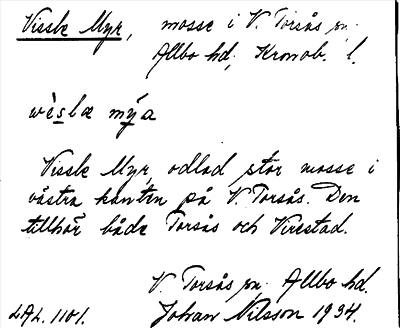 Vissle Myr, mosse i V. Torsås sn.
Allbo hd, Kronob. l.
wìslæ mýa
Vissle Myr, odlad stor mosse i
västra kanten på V. Torsås. Den
tillhör både Torsås och Virestad.
V. Torsås sn. Allbo hd.
LAL. 1101. Johan Nilsson 1934.